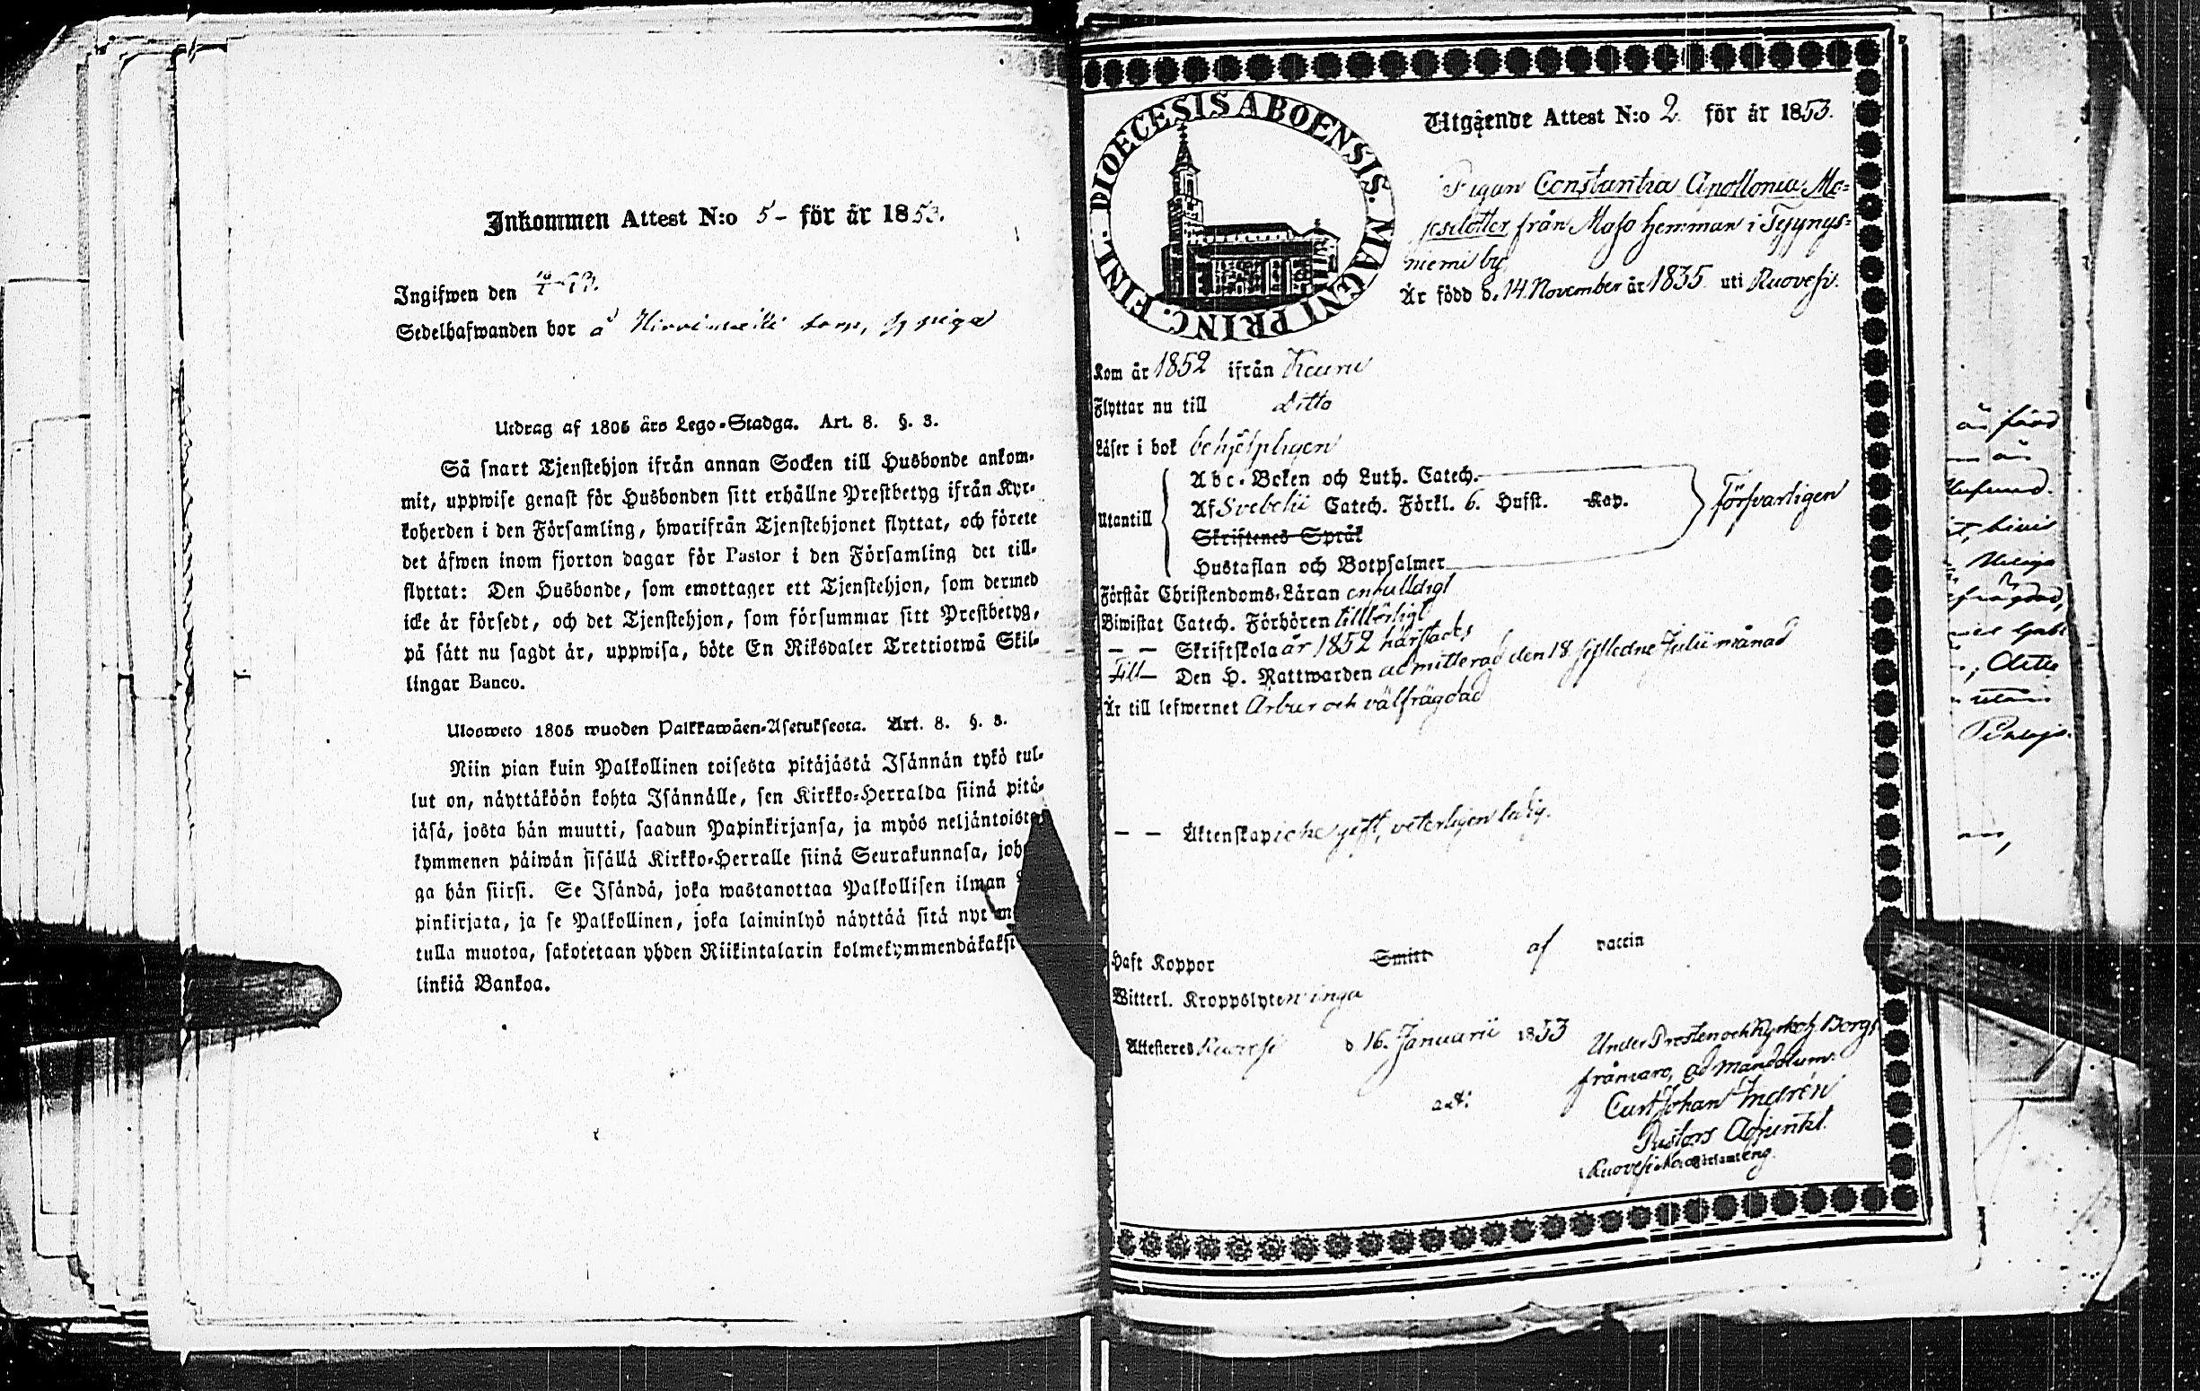 Inkommen Attest N:o 5 - för år 1853.
Ingifwen den
Sedelhafwanden bor å torp, piga
Utdrag af 1805 års Lego-Stadga. Art. 8. §. 3.
Så snart Tjenstehjon ifrån annan Socken till Husbonde ankom-
mit, uppwise genast för Husbonden sitt erhållne Prestbetyg ifrån Kyr-
koherden i den Församling, hwarifrån Tjenstehjonet flyttat, och förete
det äfwen inom fjorton dagar för Pastor i den Församling det till-
flyttat: Den Husbonde, som emottager ett Tjenstehjon, som dermed
icke är försedt, och det Tjenstehjon, som försummar sitt Prestbetyg,
på sätt nu sagdt är, uppwisa, böte En Riksdaler Trettiotwå Skil-
lingar Banco.
Ulosweto 1805 wuoden Palkkawäen-Asetuksesta. Art. 8. §. 3.
Niin pian kuin Palkollinen toisesta pitäjästä Isännän tykö tul-
lut on, näyttäköön kohta Isännälle, sen Kirkko-Herralda siinä pitä-
jäsä, josta hän muutti, saadun Papinkirjansa, ja myös neljäntoista
kymmenen päiwän sisällä Kirkko-Herralle siinä Seurakunnasa, joh
ga hän siirsi. Se Isändä, joka wastanottaa Palkollisen ilman
pinkirjata, ja se Palkollinen, joka laiminlyö näyttää sitä nyt
tulla muotoa, sakotetaan yhden Riikintalarin kolmekymmendäkaksi
linkiä Bankoa.
DIOECESIS ABOENSIS. MAGNI PRINC. FINL.
Utgående Attest N:o 2. för år 1853.
Pigan Constantia Apollonia Mo-
sesdotter från Maso hemman i
niemi by
Är född d. 14 November år 1835 uti Ruovesi.
Kom år 1852 ifrån Keuru
Flyttar nu till ditto
Läser i bok behjelpligen
Utantill
Abc-Boken och Luth. Catech.
Af Svebelii Catech. Förkl. 6. Hufst. Kap.
Skriftenes Språk
Hustaflan och Botpsalmer
Försvarligen
Förstår Christendoms-Läran enfaldigt
Biwistat Catech. Förhören tillbörligt
— — Skriftskola år 1852 härstädes
Till — Den H. Nattwarden admitterad den 18 sistledne Julii månad
Är till lefwernet Ärbar och välfrägdad
— — Äktenskap icke gift, veterligen ledig.
Haft Koppor Smitt af vaccin
Witterl. Kroppslyten inga
Attesteres Ruovesi d. 16. Januarii 1853
Under Prosten och Kyrkoh. Borgs
frånvaro, ad mandatum.
Curt Johan Indrén
Pastors Adjunkt.